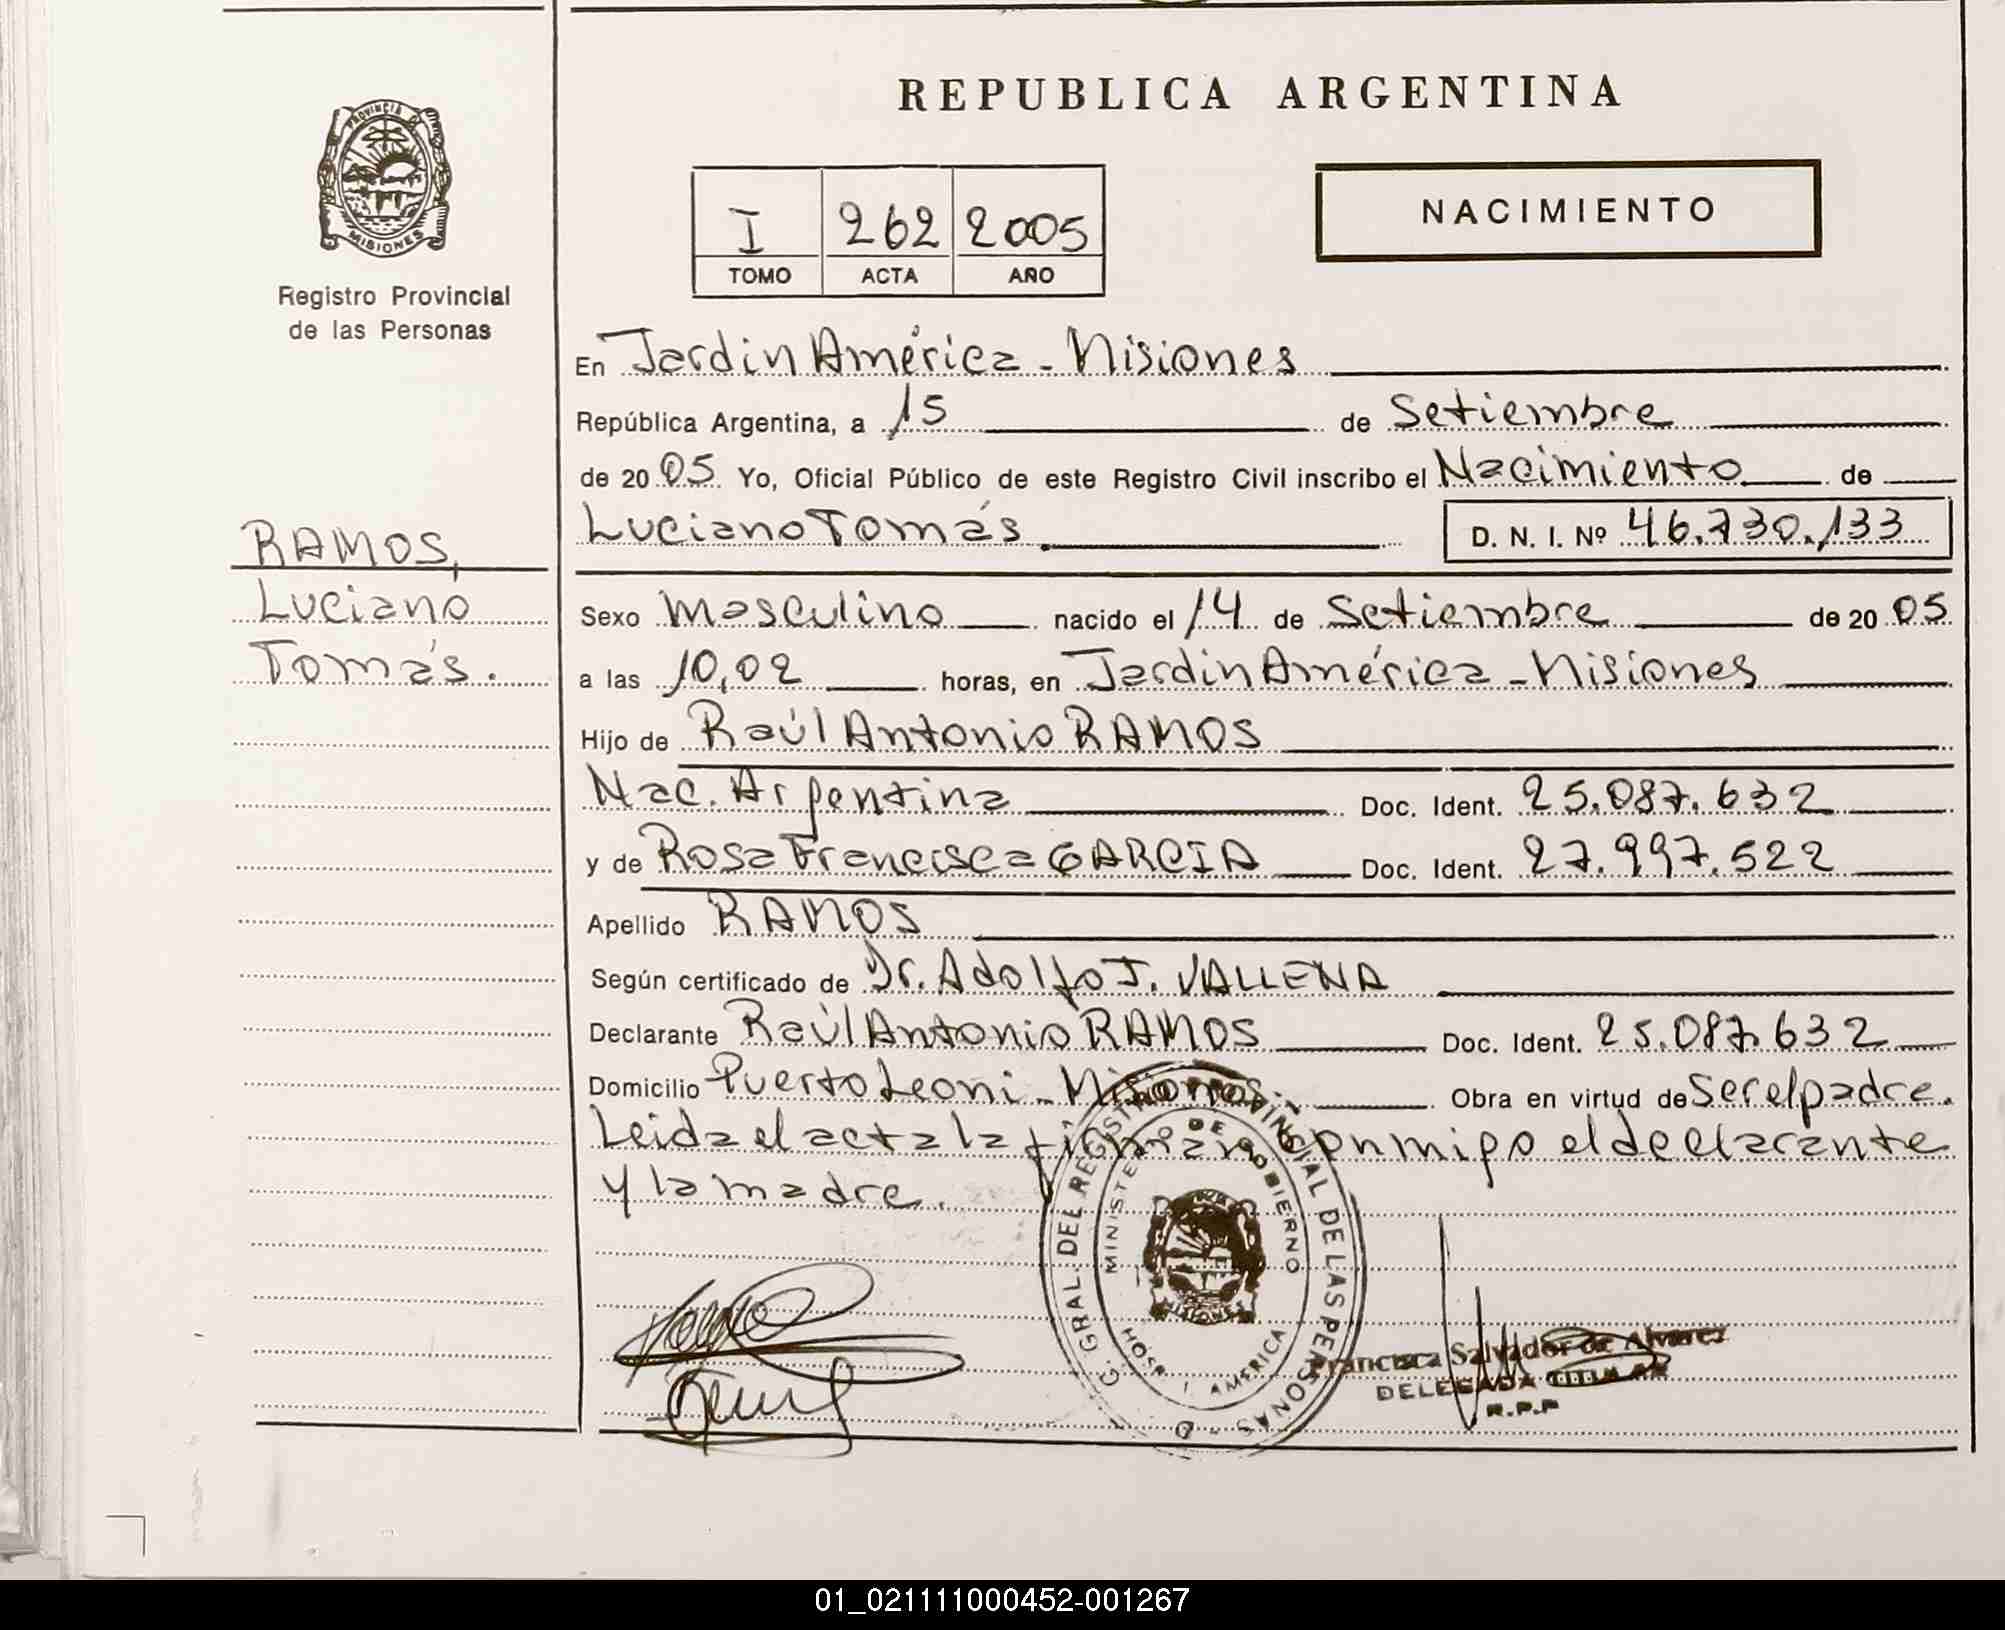 REPUBLICA ARGENTINA
PROVINCIA D
MISIONES
Registro Provincial
de las Personas
I 262 2005
TOMO ACTA AÑO
NACIMIENTO
En Jardin América - Misiones
República Argentina, a 15 de Setiembre
de 2005 Yo, Oficial Público de este Registro Civil inscribo el Nacimiento de
Luciano Tomás D. N. I. Nº 46.730.133
RAMOS,
Luciano
Tomás.
Sexo Masculino nacido el 14 de Setiembre de 2005
a las 10,02 horas, en Jardin América - Misiones
Hijo de Raúl Antonio RAMOS
Nac. Argentina Doc. Ident. 25.087.632
y de Rosa Francisca GARCIA Doc. Ident. 27.997.522
Apellido RAMOS
Según certificado de Dr. Adolfo J. VALLENA
Declarante Raúl Antonio RAMOS Doc. Ident. 25.087.632
Domicilio Puerto Leoni - Misiones Obra en virtud de ser el padre.
Leida el acta la firman conmigo el declarante
y la madre.
G. GRAL. DEL REGISTRO PROVINCIAL DE LAS PERSONAS - D
MINISTERIO DE GOBIERNO
MISIONES
AMERICA
Francisca Salvador de Alvarez
DELEGADA TITULAR
R.P.P
01_021111000452-001267